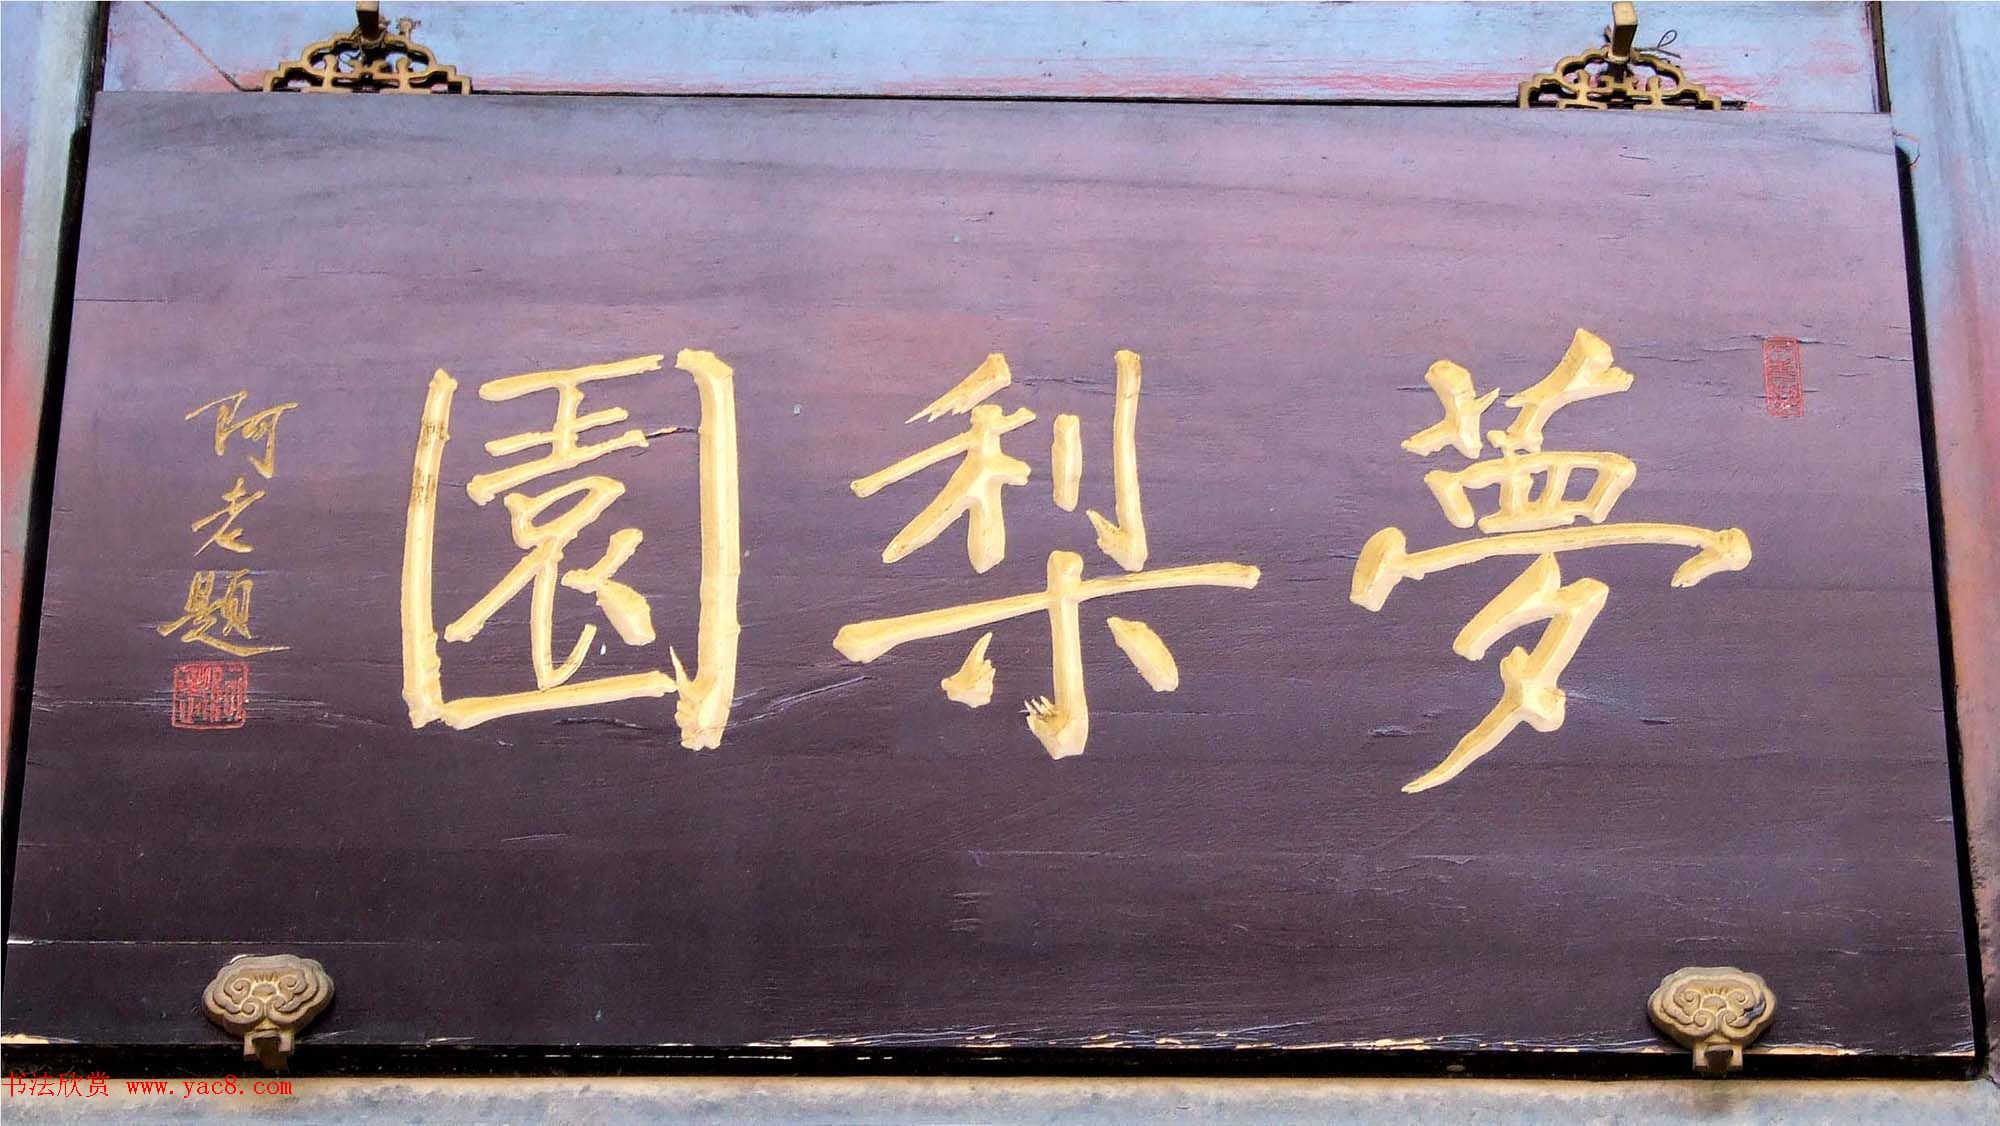 夢梨園
阿老題
书法欣赏 www.yac8.com